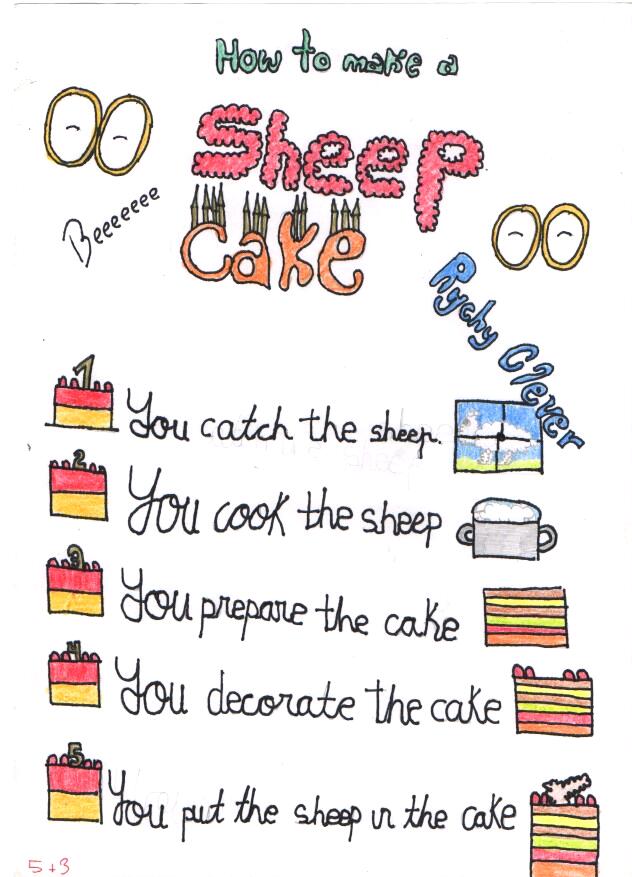 How to make a
Sheep
Beeeeeee
Cake
Rychy Clever
1 You catch the sheep.
2 You cook the sheep
3 You prepare the cake
4 You decorate the cake
5 You put the sheep in the cake
5+3